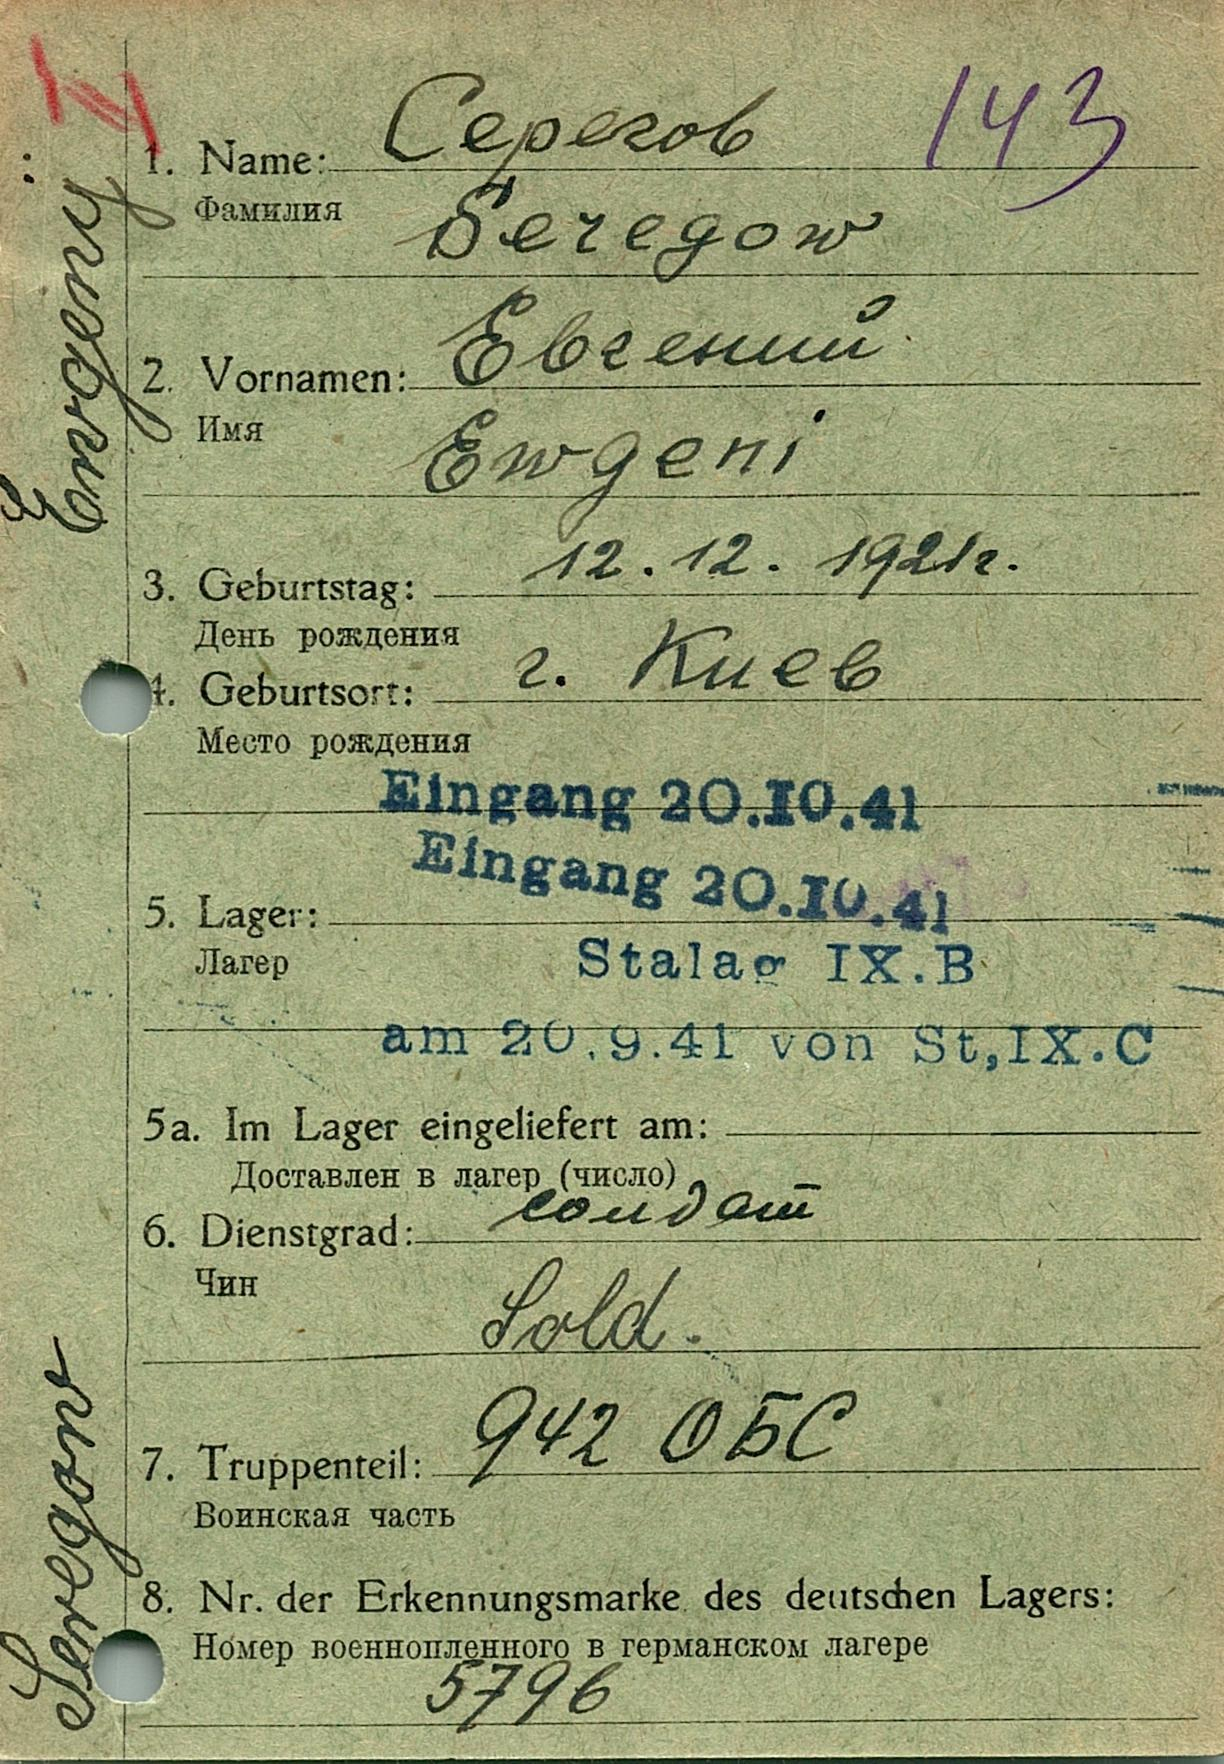 143
1. Name: Серегов
Фамилия
Seregow
2. Vornamen: Евгений
Имя
Ewgeni
3. Geburtstag: 12.12.1921г.
День рождения
4. Geburtsort: г. Киев
Место рождения
Eingang 20.10.41
Eingang 20.10.41
5. Lager:
Лагер
Stalag IX.B
am 20.9.41 von St,IX.C
5a. Im Lager eingeliefert am:
Доставлен в лагер (число)
6. Dienstgrad: солдат
Чин
Sold.
7. Truppenteil: 942 ОБС
Воинская часть
8. Nr. der Erkennungsmarke des deutschen Lagers:
Номер военнопленного в германском лагере
5796
Seregow
Ewgenij